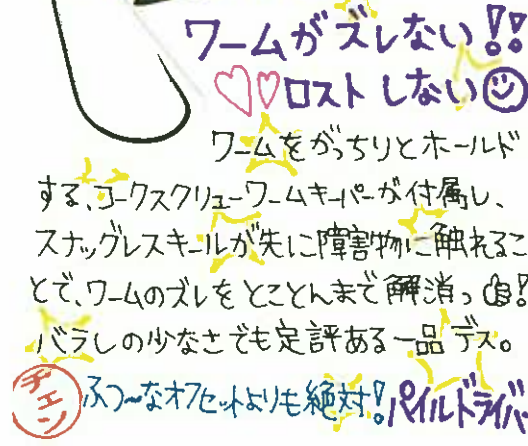 ワームがズレない!!
ロストしない
ワームをがっちりとホールド
する、コークスクリューワームキーパーが付属し、
スナッグレスキールが先に障害物に触れるこ
とで、ワームのズレをとことんまで解消っ!
バラしの少なさでも定評ある一品デス。
チエン
ふつ〜なオフセットよりも絶対!パイルドライバ